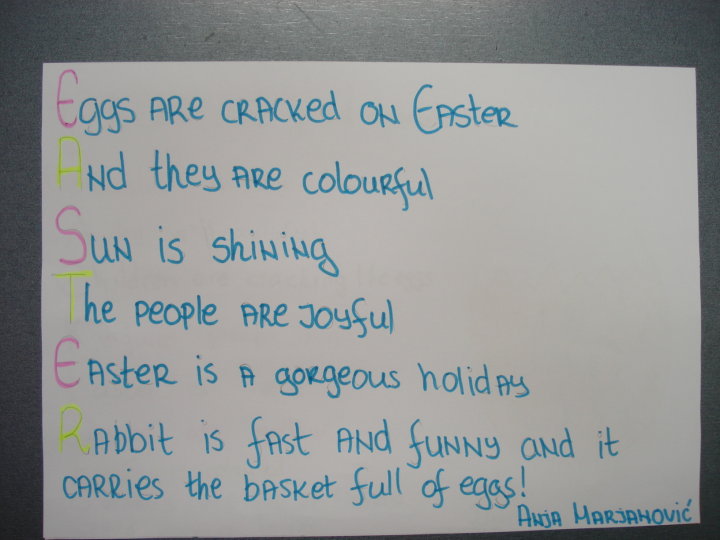 Eggs are cracked on Easter
And they are colourful
Sun is shining
The people are joyful
Easter is a gorgeous holiday
Rabbit is fast and funny and it
carries the basket full of eggs!
Anja Marjanović